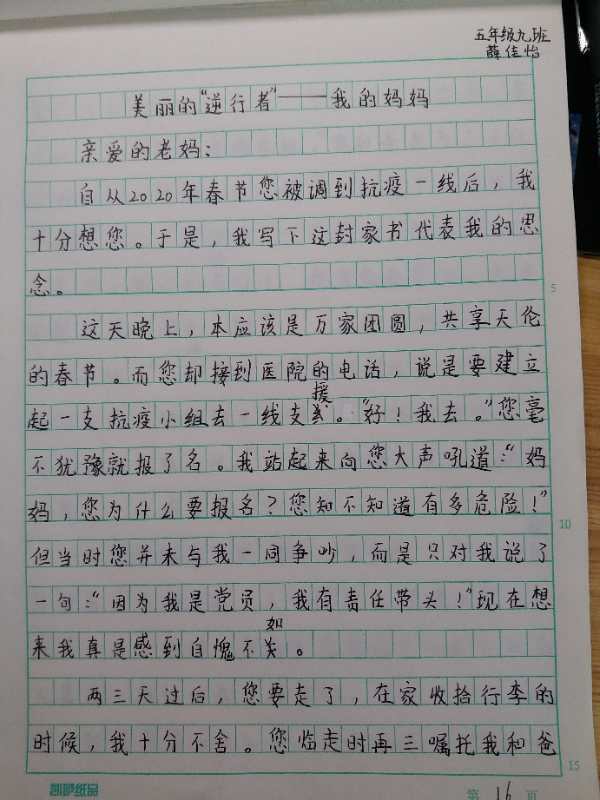 五年级九班
薛佳怡
美丽的“逆行者”——我的妈妈
亲爱的老妈:
自从2020年春节您被调到抗疫一线后,我
十分想您。于是,我写下这封家书代表我的思
念。
5
这天晚上,本应该是万家团圆,共享天伦
的春节。而您却接到医院的电话,说是要建立
援
起一支抗疫小组去一线支。“好!我去。”您毫
不犹豫就报了名。我站起来向您大声吼道:“妈
妈,您为什么要报名?您知不知道有多危险!”
10
但当时您并未与我一同争吵,而是只对我说了
一句:“因为我是党员,我有责任带头!”现在想
如
来我真是感到自愧不。
两三天过后,您要走了,在家收拾行李的
时候,我十分不舍。您临走时再三嘱托我和爸
15
凯萨纸品
第 16 页